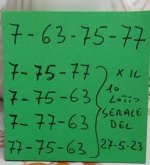 7-63-75-77
7-75-77
7-75-63
7-77-63
77-75-63
X IL
10
LOTTO
SERALE
DEL
27-5-23